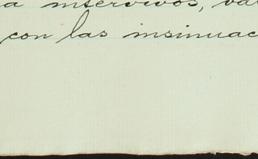 a intervivos, va
con las insinuac